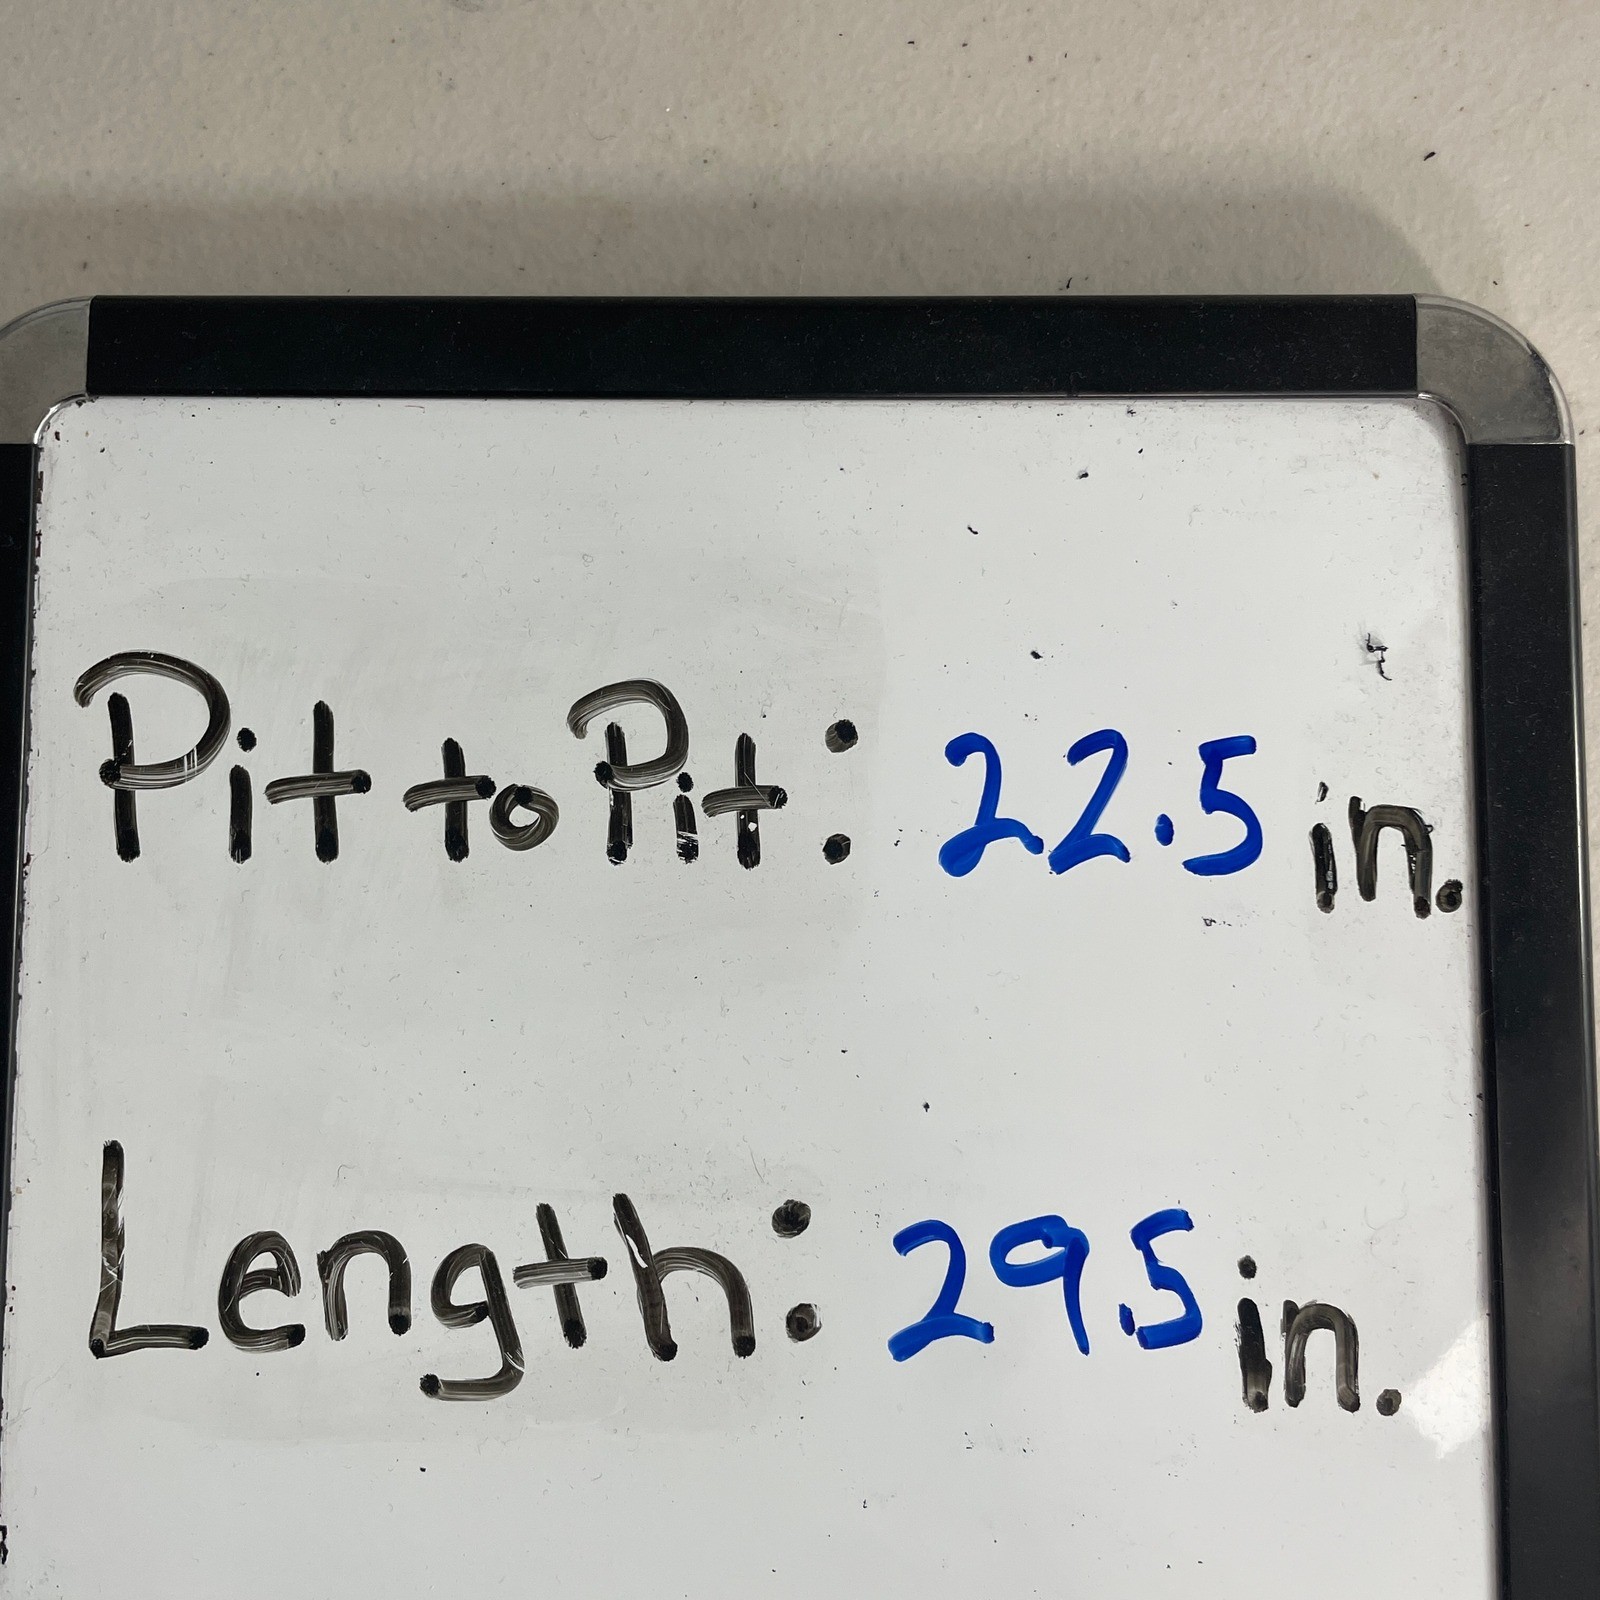 Pit to Pit: 22.5 in.
Length: 29.5 in.